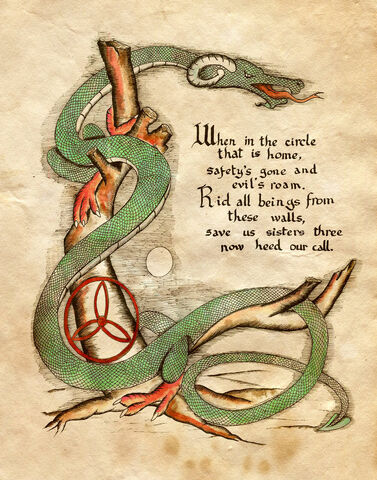 When in the circle
that is home,
safety's gone and
evil's roam.
Rid all beings from
these walls,
save us sisters three
now heed our call.